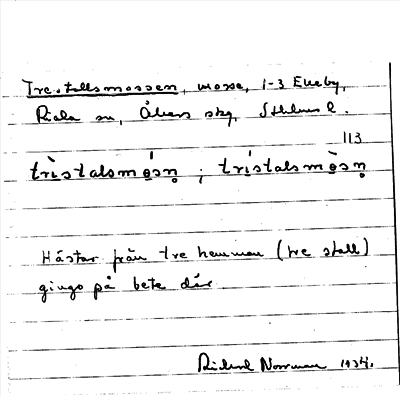 Trestallsmossen, mosse, 1-3 Ekeby,
Riala sn, Åkers skg, Sthlms l.
113
trìstalsmǫ́sṇ ; trístalsmǫ̀sṇ
Hästar från tre hemman (tre stall)
gingo på bete där.
Rickard Norrman 1934.